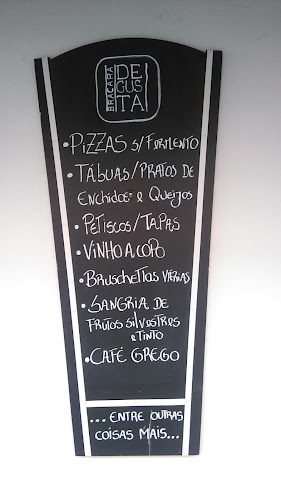 BRACARA
DE
GUS
TA
• PIZZAS S/ FERMENTO
• TÁBUAS/PRATOS DE
ENCHIDOS e QUEIJOS
• PETISCOS/TAPAS
• VINHO A COPO
• BRUSCHETTAS VÁRIAS
• SANGRIA DE
FRUTOS SILVOSTRES
e TINTO
• CAFÉ GREGO
... ENTRE OUTRAS
COISAS MAIS...